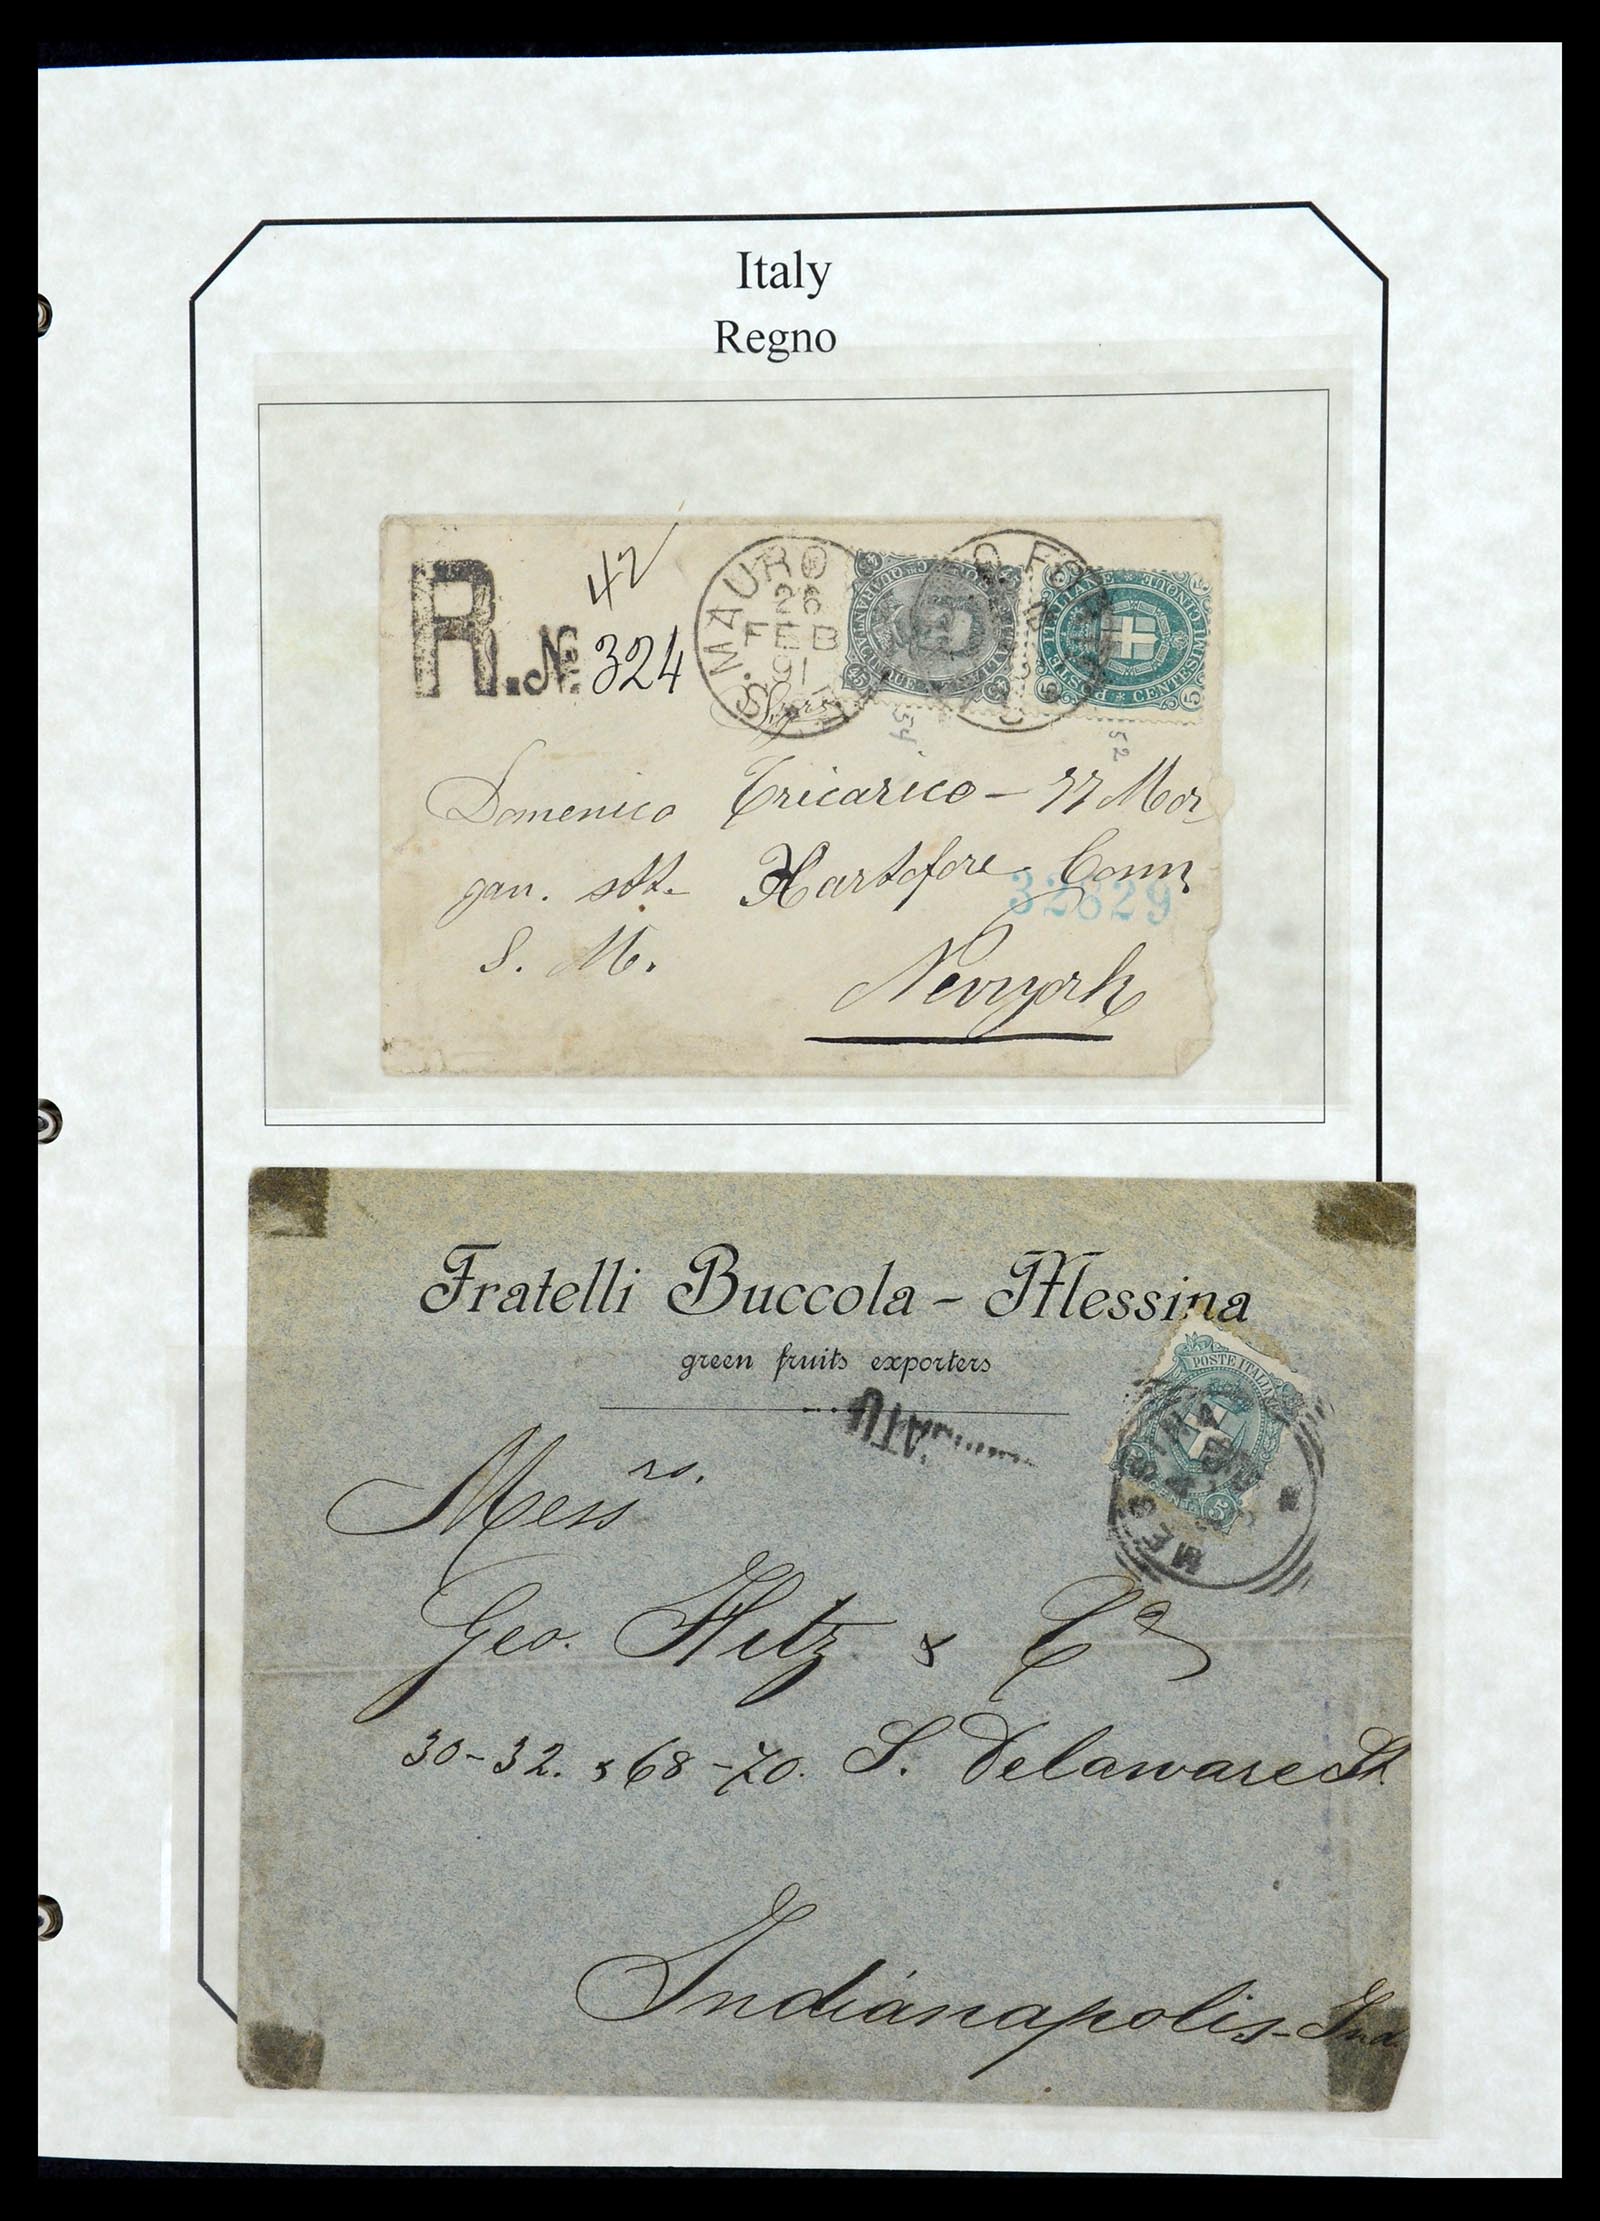 Italy
Regno
R. № 324
42
MAURO
26
FEB
91
QUARANTACINQUE
POSTE ITALIANE * CENTESIMI CINQUE *
5
54
52
Domenico Tricarico - 77 Mor
gan. stt. Hartfore Conn
32829
S. M.
Newyork
Fratelli Buccola - Messina
green fruits exporters
POSTE ITALIANE
5
Messrs.
Geo. Hitz & Co
30-32. & 68-70. S. Delaware St.
Indianapolis - Ind.